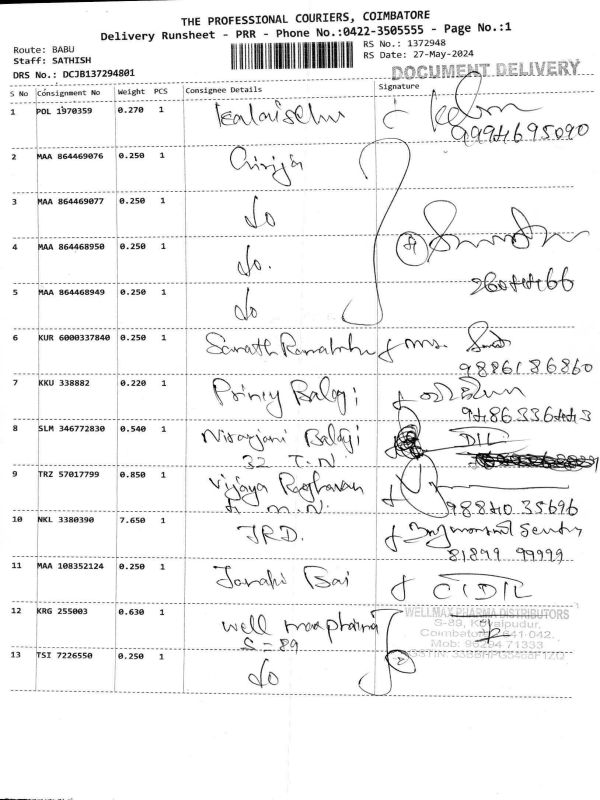 THE PROFESSIONAL COURIERS, COIMBATORE
Delivery Runsheet - PRR - Phone No.:0422-3505555 - Page No.:1
Route: BABU
Staff: SATHISH
DRS No.: DCJB137294801
RS No.: 1372948
RS Date: 27-May-2024
DOCUMENT DELIVERY
S No Consignment No Weight PCS Consignee Details Signature
1 POL 1970359 0.270 1
9994695090
2 MAA 864469076 0.250 1 Girija
3 MAA 864469077 0.250 1 do
4 MAA 864468950 0.250 1 do.
5 MAA 864468949 0.250 1 do
6 KUR 6000337840 0.250 1 Sarath
9886186860
7 KKU 338882 0.220 1 Princy Balaji
9486336443
8 SLM 346772830 0.540 1 Niranjani Balaji
32 T.N
9 TRZ 57017799 0.850 1 Vijaya Raghavan
98840 35696
10 NKL 3380390 7.650 1 JRD.
81899 99999
11 MAA 108352124 0.250 1 Janaki Bai
12 KRG 255003 0.630 1 well max pharma
S = 89
WELLMAX PHARMA DISTRIBUTORS
S-89,
Coimbatore 641 042.
13 TSI 7226550 0.250 1 do
2